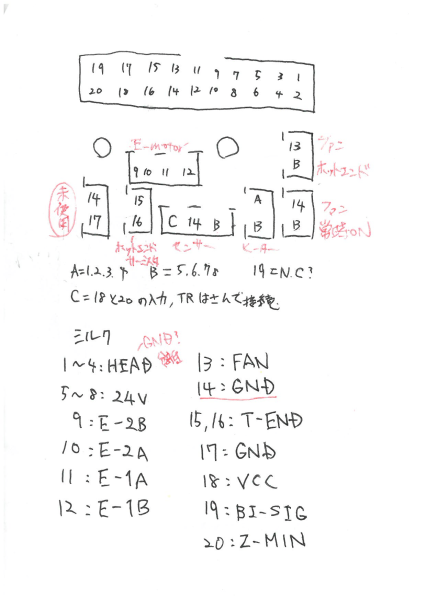 19 17 15 13 11 9 7 5 3 1
20 18 16 14 12 10 8 6 4 2
E-motor
9 10 11 12
13
B
ファン
ホットエンド
未使用
14
17
15
16
C 14 B
A
B
14
B
ファン
常時ON
ホットエンド
サーミスタ
センサー
ヒーター
A=1.2.3.4 B=5.6.7.8 19=N.C?
C=18と20の入力,TRはさんで接続
ミルク
GND?
1~4:HEAD
5~8:24V
9:E-2B
10:E-2A
11:E-1A
12:E-1B
13:FAN
14:GND
15,16:T-END
17:GND
18:VCC
19:BI-SIG
20:Z-MIN